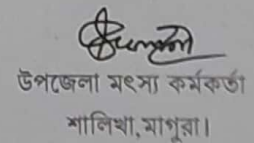 উপজেলা মৎস্য কর্মকর্তা
শালিখা,মাগুরা।